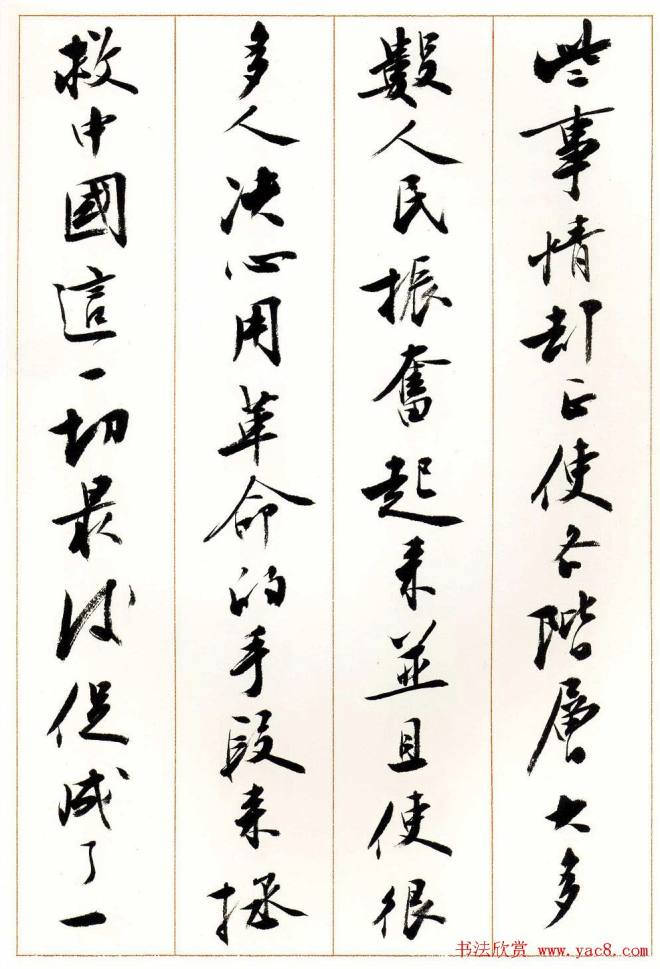 些事情却正使各階層大多
數人民振奮起来並且使很
多人决心用革命的手段来拯
救中國這一切最後促成了一
书法欣赏 www.yac8.com